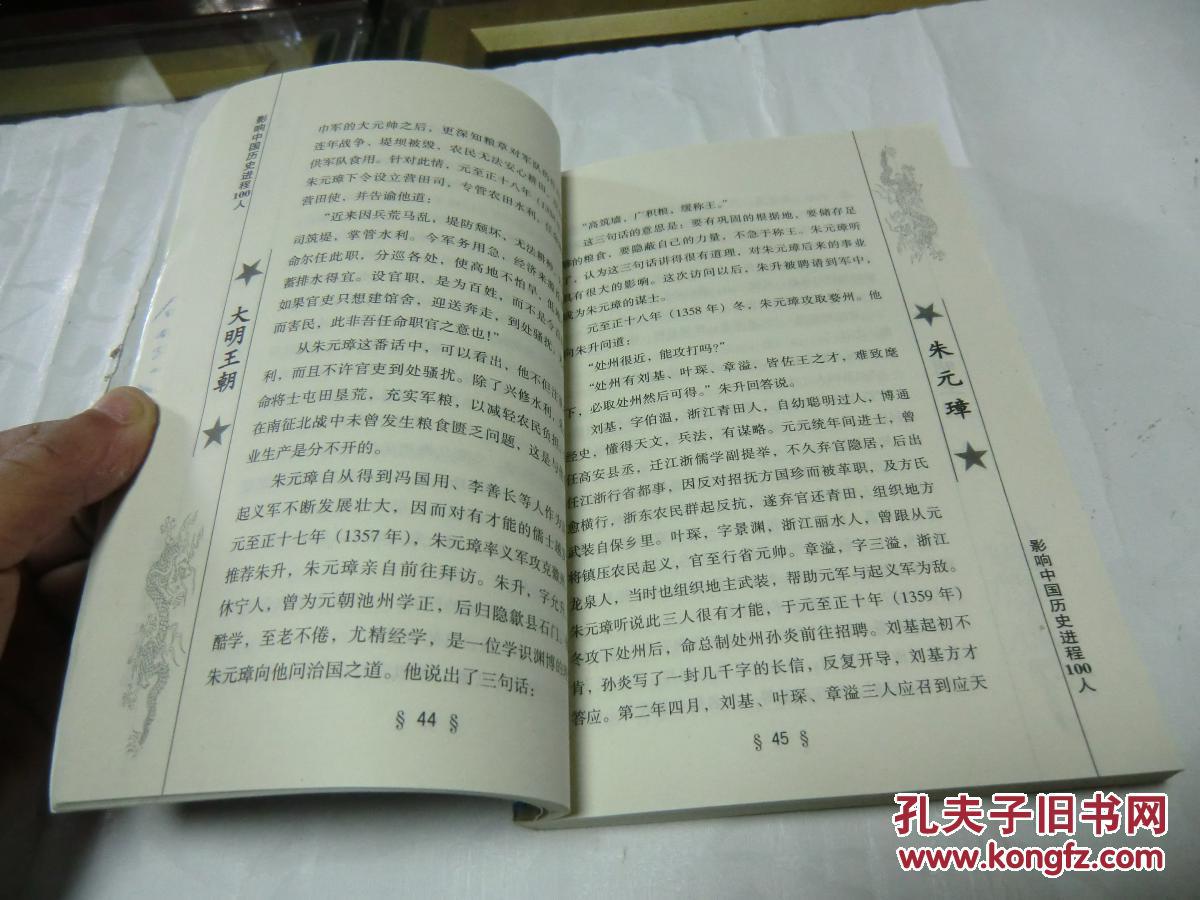 影响中国历史进程100人
大明王朝
巾军的大元帅之后，更深知粮草对军队的
连年战争、堤坝被毁、农民无法安心耕田，
供军队食用。针对此情，元至正十八年（13
朱元璋下令设立营田司，专管农田水利，任
营田使，并告谕他道：
“近来因兵荒马乱，堤防颓坏，无法耕种，
司筑堤，掌管水利。今军务用急，经济来源
命尔任此职，分巡各处，使高地不怕旱，低
蓄排水得宜。设官职，是为百姓，而不是令
如果官吏只想建馆舍，迎送奔走，到处骚扰，
而害民，此非吾任命职官之意也！”
从朱元璋这番话中，可以看出，他不但注
利，而且不许官吏到处骚扰。除了兴修水利，
命将士屯田垦荒，充实军粮，以减轻农民负担
在南征北战中未曾发生粮食匮乏问题，这是与
业生产是分不开的。
朱元璋自从得到冯国用、李善长等人作为
起义军不断发展壮大，因而对有才能的儒士越
元至正十七年（1357年），朱元璋率义军攻克徽
推荐朱升，朱元璋亲自前往拜访。朱升，字允升
休宁人，曾为元朝池州学正，后归隐歙县石门，
酷学，至老不倦，尤精经学，是一位学识渊博的
朱元璋向他问治国之道。他说出了三句话：
§ 44 §
“高筑墙，广积粮，缓称王。”
这三句话的意思是：要有巩固的根据地，要储存足
够的粮食，要隐蔽自己的力量，不急于称王。朱元璋听
了，认为这三句话讲得很有道理，对朱元璋后来的事业
具有很大的影响。这次访问以后，朱升被聘请到军中，
成为朱元璋的谋士。
元至正十八年（1358年）冬，朱元璋攻取婺州。他
向朱升问道：
“处州很近，能攻打吗？”
“处州有刘基、叶琛、章溢，皆佐王之才，难致麾
下，必取处州然后可得。”朱升回答说。
刘基，字伯温，浙江青田人，自幼聪明过人，博通
经史，懂得天文，兵法，有谋略。元元统年间进士，曾
任高安县丞，迁江浙儒学副提举，不久弃官隐居，后出
任江浙行省都事，因反对招抚方国珍而被革职，及方氏
愈横行，浙东农民群起反抗，遂弃官还青田，组织地方
武装自保乡里。叶琛，字景渊，浙江丽水人，曾跟从元
将镇压农民起义，官至行省元帅。章溢，字三溢，浙江
龙泉人，当时也组织地主武装，帮助元军与起义军为敌。
朱元璋听说此三人很有才能，于元至正十年（1359年）
冬攻下处州后，命总制处州孙炎前往招聘。刘基起初不
肯，孙炎写了一封几千字的长信，反复开导，刘基方才
答应。第二年四月，刘基、叶琛、章溢三人应召到应天
§ 45 §
朱元璋
影响中国历史进程100人
孔夫子旧书网
www.kongfz.com